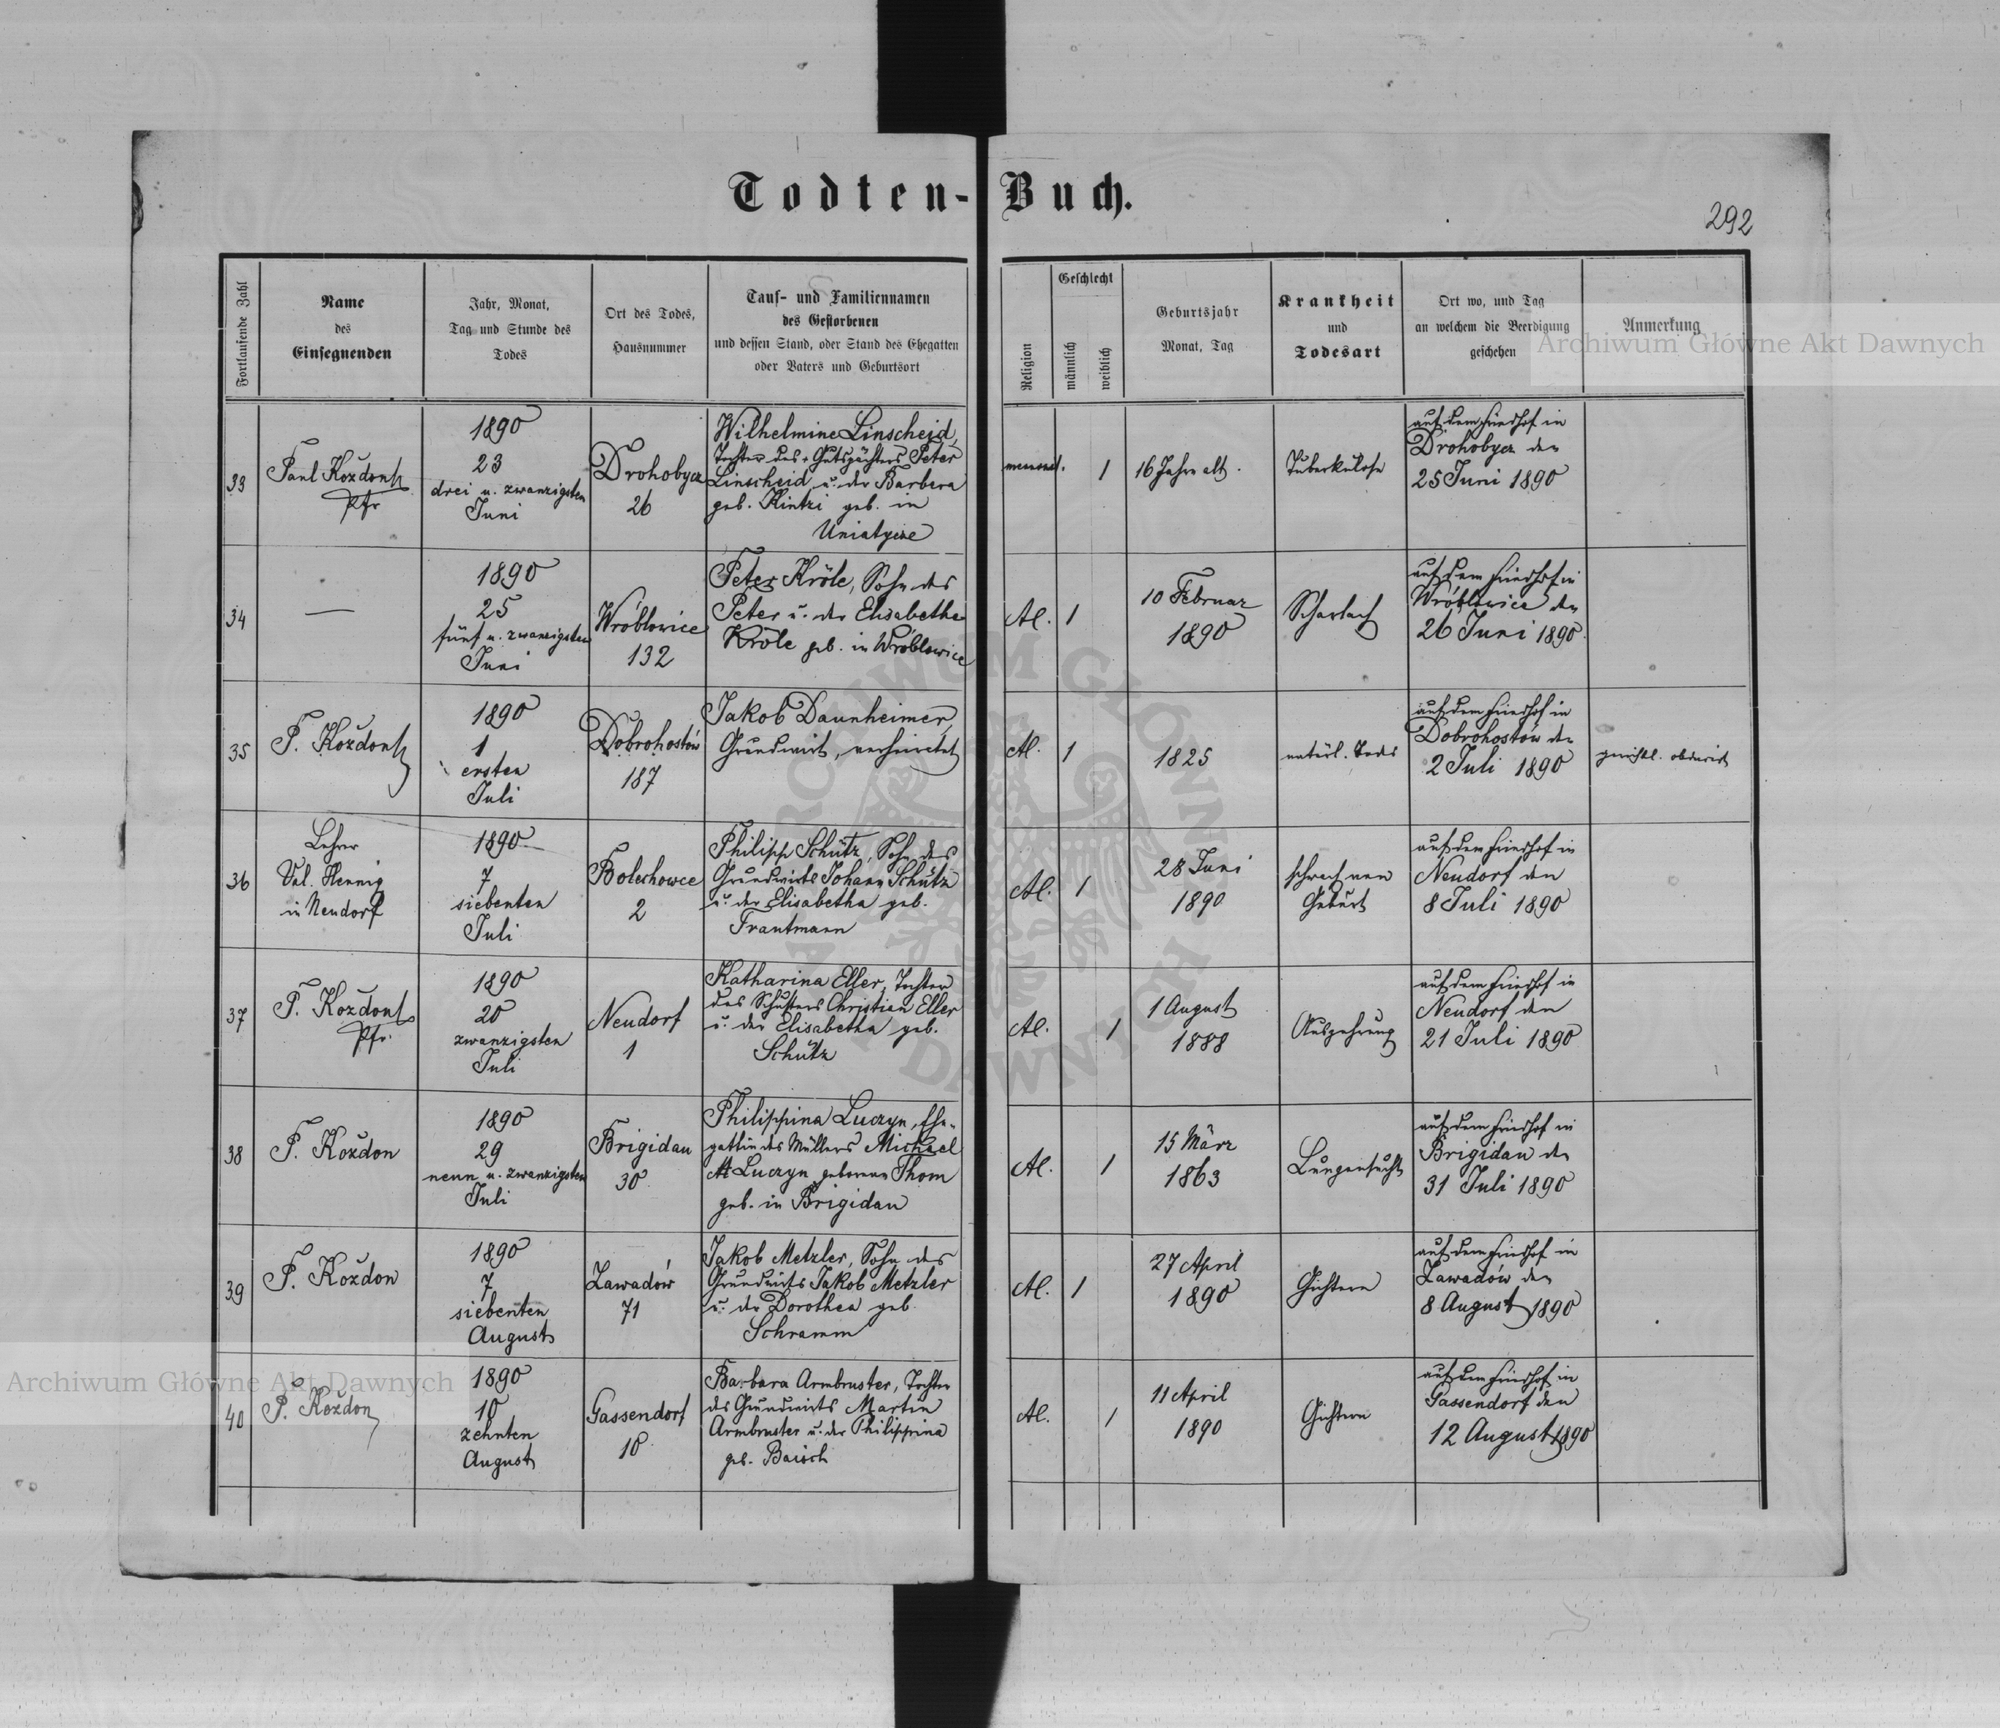 Todten-Buch.
292
Fortlaufende Zahl
Name
des
Einsegnenden
Jahr, Monat,
Tag und Stunde des
Todes
Ort des Todes,
Hausnummer
Tauf- und Familiennamen
des Gestorbenen
und dessen Stand, oder Stand des Ehegatten
oder Vaters und Geburtsort
Religion
Geschlecht
männlich
weiblich
Geburtsjahr
Monat, Tag
Krankheit
und
Todesart
Ort wo, und Tag
an welchem die Beerdigung
geschehen
Anmerkung
Archiwum Główne Akt Dawnych
33
Paul Kozdon
Pfr
1890
23
drei u. zwanzigsten
Juni
Drohobycz
26
Wilhelmine Linscheid,
Tochter des Gutspächters Peter
Linscheid u. der Barbara
geb. Kintzi geb. in
1
16 Jahre alt.
Tuberkulose
auf dem Friedhof in
Drohobycz den
25 Juni 1890
34
—
1890
25
fünf u. zwanzigsten
Juni
Wróblowice
132
Peter Kröle, Sohn des
Peter u. der Elisabetha
Kröle geb. in Wróblowice
AC.
1
10 Februar
1890
Scharlach
auf dem Friedhof in
Wróblowice den
26 Juni 1890
35
P. Kozdon
1890
1
ersten
Juli
Dobrohostów
187
Jakob Daunheimer,
Grundwirt, verheiratet
AC.
1
1825
natürl. Tods
auf dem Friedhof in
Dobrohostów den
2 Juli 1890
36
Lehrer
Val. Hennig
in Neudorf
1890
7
siebenten
Juli
Bolechowce
2
Philipp Schütz, Sohn des
Grundwirts Johann Schütz
u. der Elisabetha geb.
Trautmann
AC.
1
28 Juni
1890
Geburt
auf dem Friedhof in
Neudorf den
8 Juli 1890
37
P. Kozdon
Pfr.
1890
20
zwanzigsten
Juli
Neudorf
1
Katharina Eller, Tochter
des Schusters Christian Eller
u. der Elisabetha geb.
Schütz
AC.
1
1 August
1888
Auszehrung
auf dem Friedhof in
Neudorf den
21 Juli 1890
38
P. Kozdon
1890
29
neun u. zwanzigsten
Juli
Brigidau
30
Philippina Luczyn, Ehe-
gattin des Müllers Michael
Luczyn geborene Thom
geb. in Brigidau
AC.
1
15 März
1863
Lungensucht
auf dem Friedhof in
Brigidau den
31 Juli 1890
39
P. Kozdon
1890
7
siebenten
August
Zawadów
71
Jakob Metzler, Sohn des
Grundwirts Jakob Metzler
u. der Dorothea geb.
Schramm
AC.
1
27 April
1890
Gichtern
auf dem Friedhof in
Zawadów den
8 August 1890
40
P. Kozdon
1890
10
zehnten
August
Gassendorf
10
Barbara Armbruster, Tochter
des Grundwirts Martin
Armbruster u. der Philippina
geb. Baisch
AC.
1
11 April
1890
Gichtern
auf dem Friedhof in
Gassendorf den
12 August 1890
Archiwum Główne Akt Dawnych